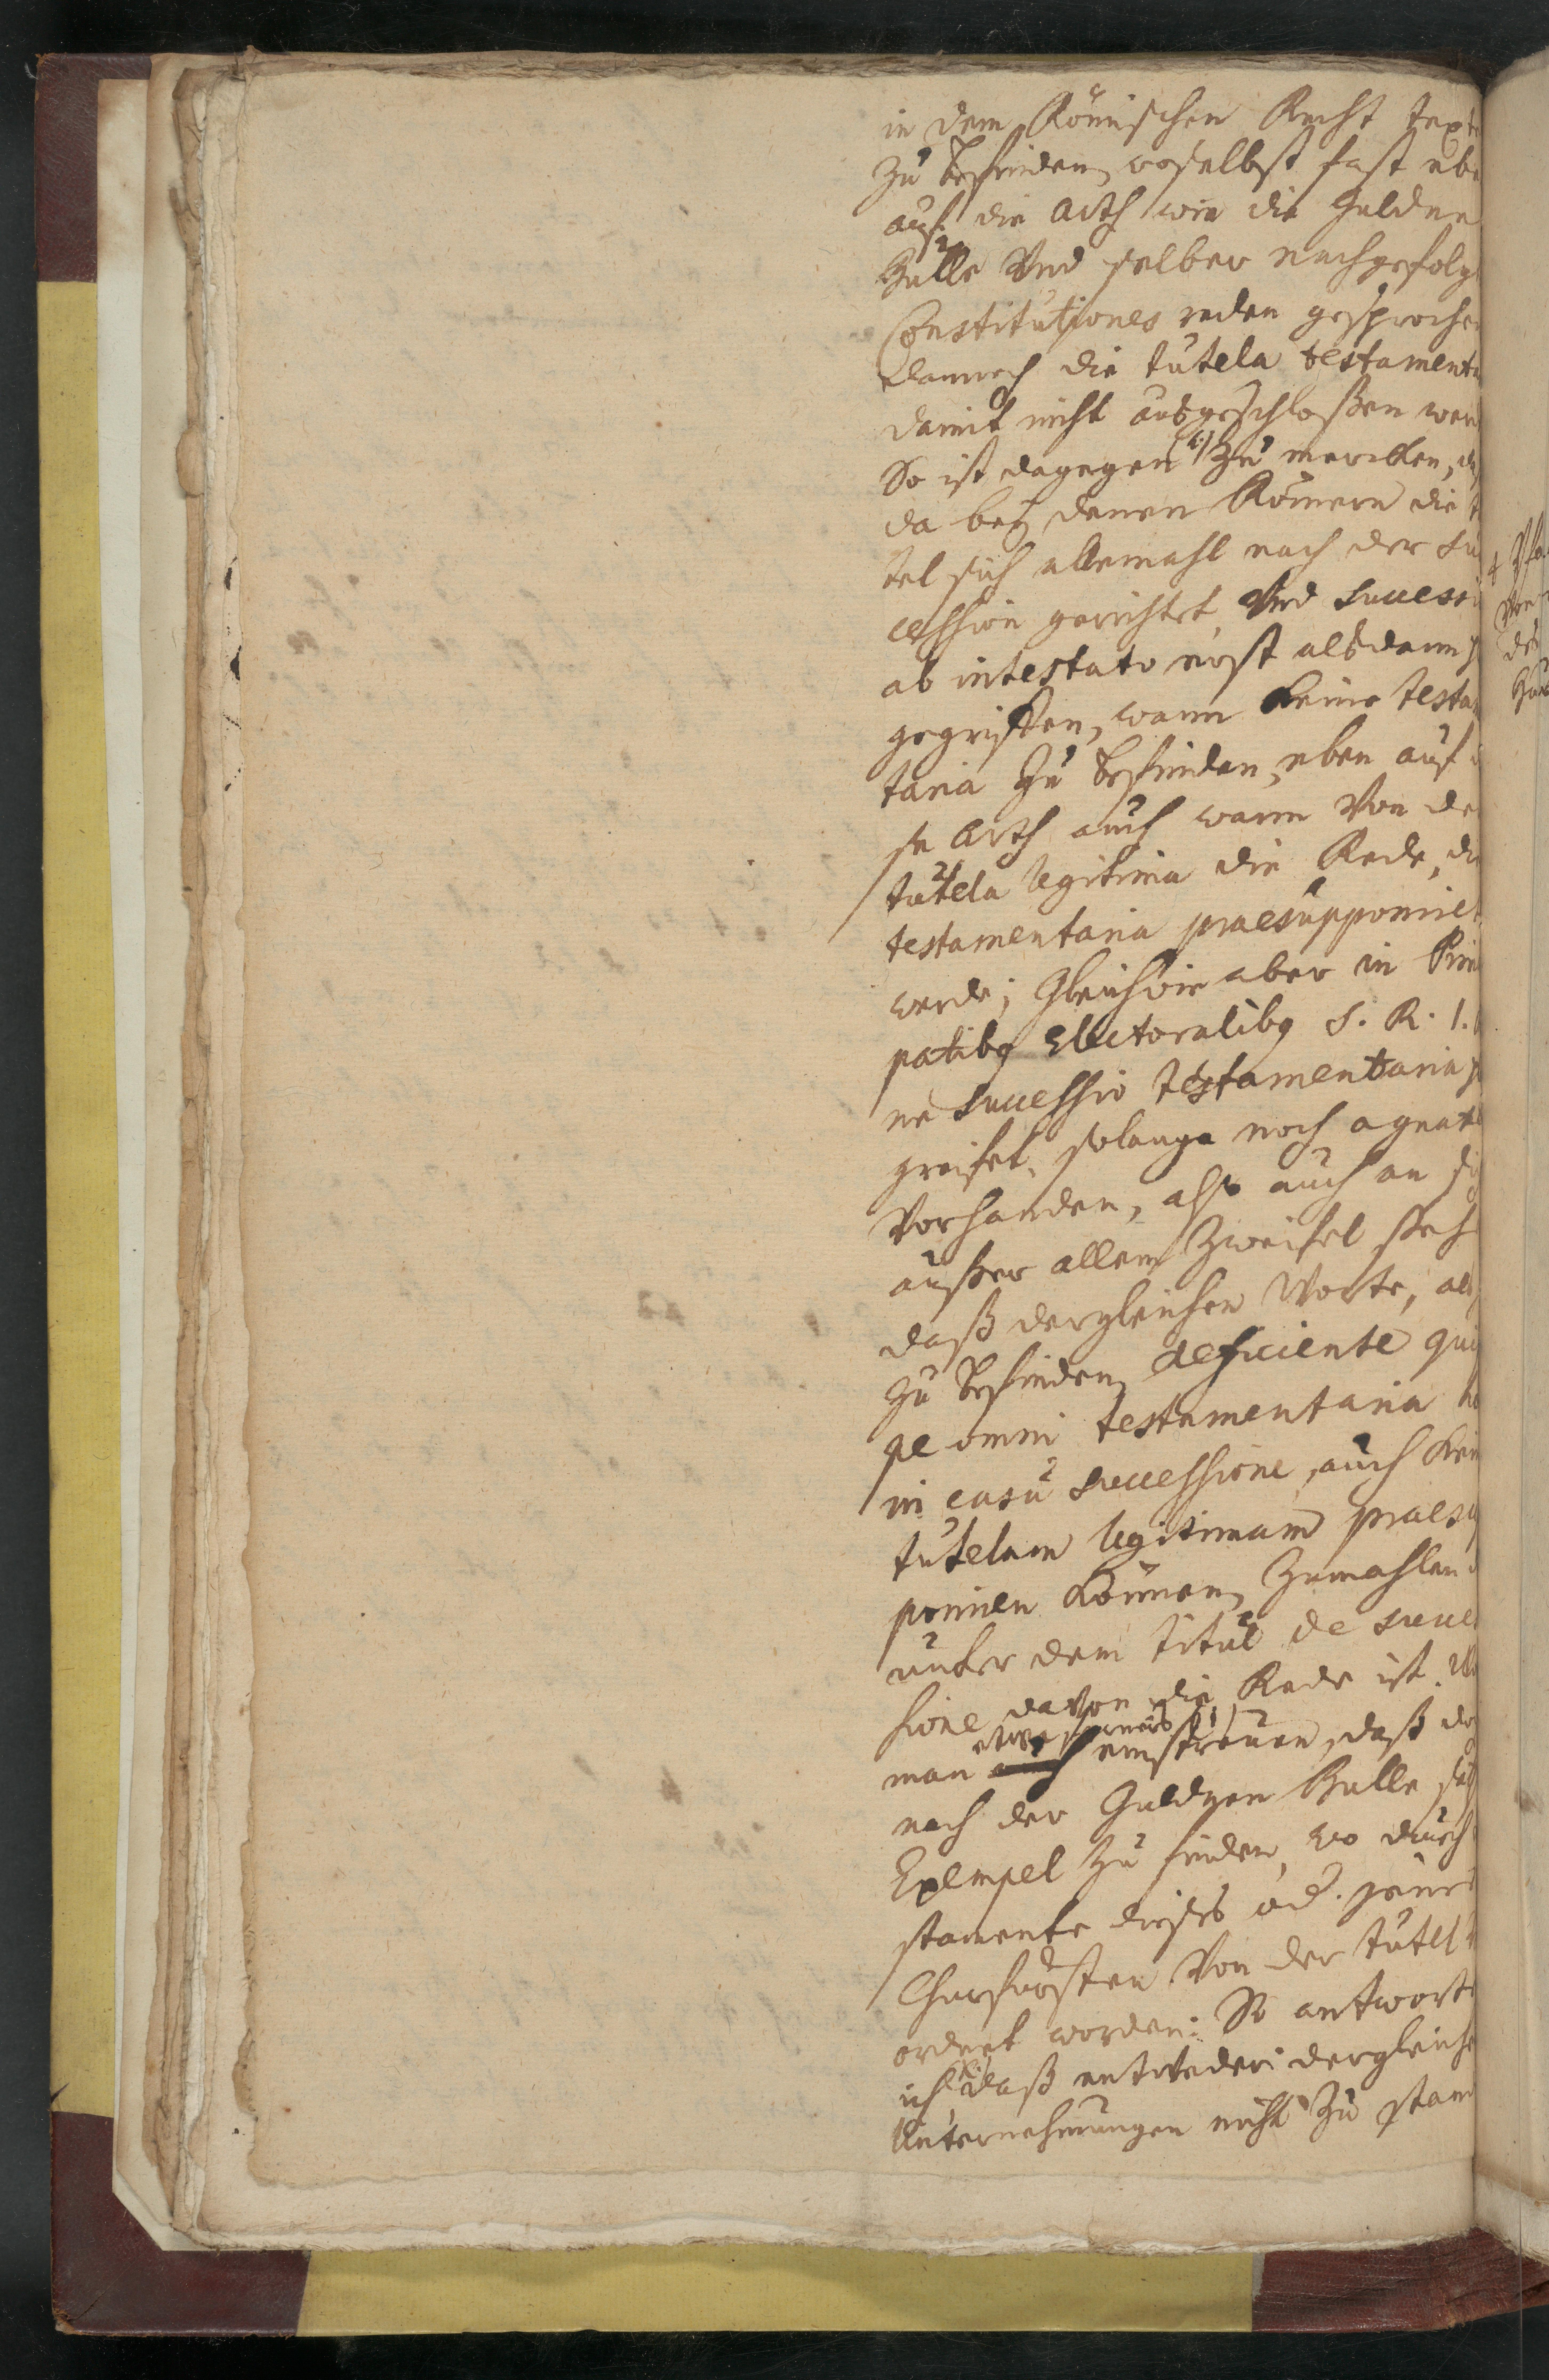 in dem Römischen Recht texte
zu befinden, woselbst fast ebe
auf die Arth wie die Guldne
Bulle Vnd selber nachgefolg
Constitutiones reden gesprochen
dennoch die tutela testamenta
damit nicht ausgeschloßen wer
So ist dagegen zu mercken, daß
da bey denen Römern die t
tel sich allemahl nach der Suc
cession gerichtet, Vnd Successi
ab intestato erst alsdann
gegriffen, wann keine testa
taria zu befinden, eben auf
se Arth auch wann Von de
tutela legitima die Rede, di
testamentaria praesupponiret
werde; Gleichwie aber in Prin
patibq Electoralibq S. R. I.
ne Successio testamentaria
greifet, solange noch agnat
Vorhanden, also auch an sich
außer allem Zweifel steh
daß dergleichen Worte, als
zu befinden, deficiente quip
pe omni testamentaria
in casu successione, auch kein
tutelam legitimam praesup
poniren können, Zumahlen
unter dem titul de succes
sione davon die Rede ist.
etwa ferners
man einstreuen, daß
nach der Guldnen Bulle
Exempel zu finden, wo durch
stamente dieses od. jenes
Churfürsten Von der tutel
ordnet worden: So antworte
ich, daß entweder dergleiche
Unternehmungen nicht zu stan